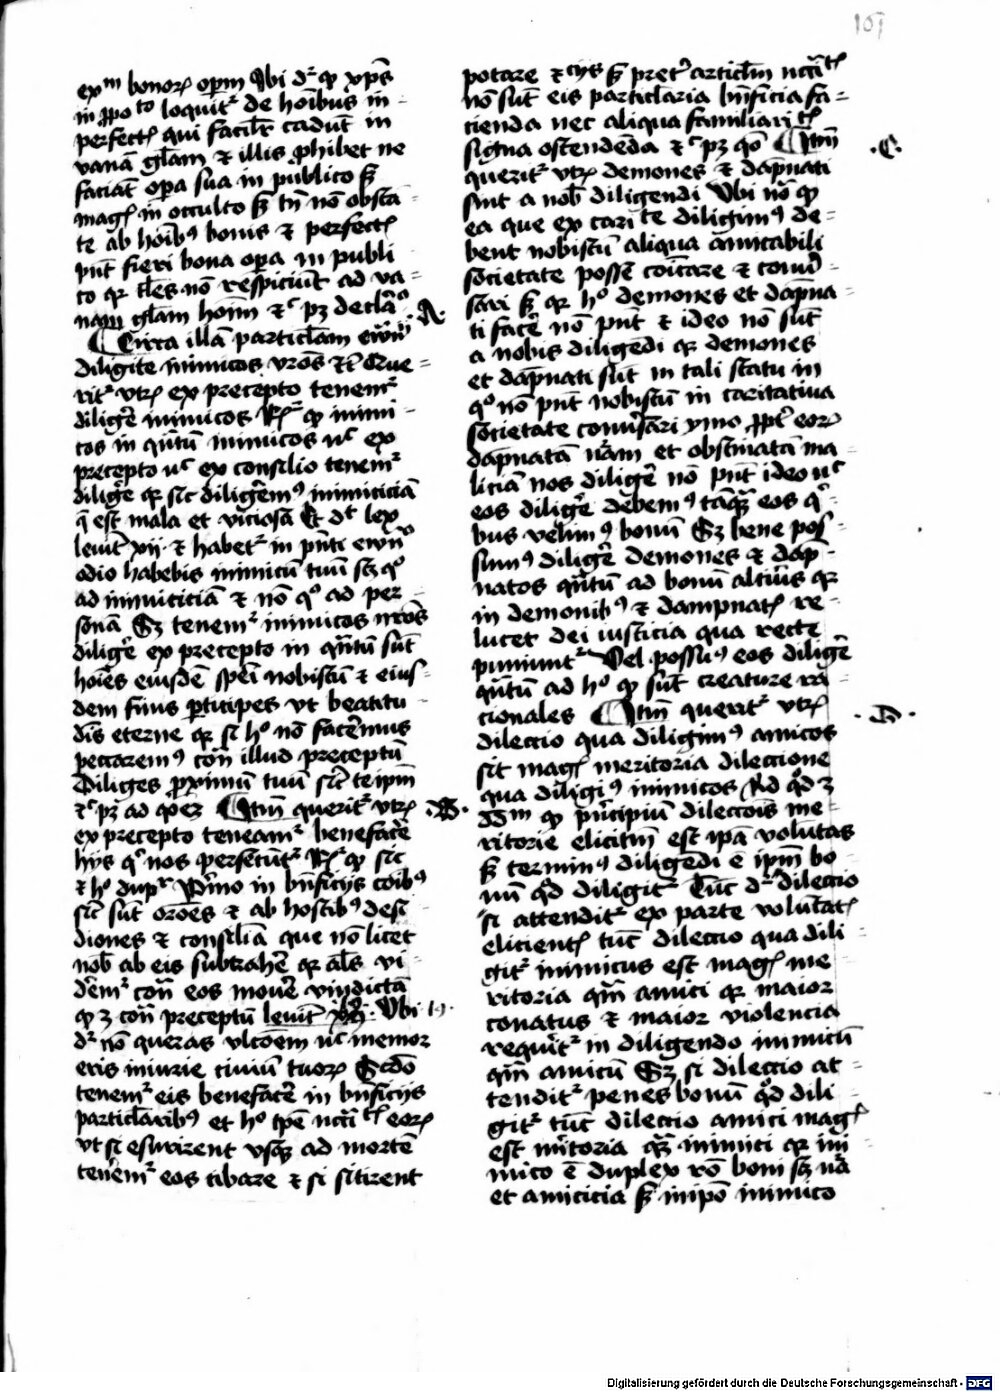 101
exm bonoꝝ opm Vbi dr ꝙ xps
in ꝓpoto loquitr de hoibus in-
perfectꝭ qui facilr cadut in
vana glam et illis phibet ne
faciat opa sua in publico sꝫ
magꝭ in occulto sꝫ tn no obsta-
te ab hoibꝯ bonis et perfectꝭ
pnt fieri bona opa in publi
co qr tles no respiciut ad va-
nam glam hoim etc pꝫ declao
.A.
Circa illa particlam ewn
diligite inimicos vros etc Que-
ritr vtꝝ ex precepto tenemr
diligre inimicos Rꝭ ꝙ inimi-
cos in qntu inimicos nc ex
precepto nc ex consilio tenemr
diligre qr sic diligremꝯ inimicicia
que est mala et viciosa Et dt lex
leuit xij et habetr in pnti ewno
odio habebis inimicu tuu scꝫ qo
ad inimicicia et no qo ad per-
sona Sꝫ tenemr inimicos nros
diligre ex precepto in qntu sut
hoies eiusdem spei nobiscu et eius-
dem finis pticipes vt beatitu-
dis eterne qr si ho no facemus
peccaremꝯ con illud preceptu
Diliges pximu tuu sic teipm
etc pꝫ ad qoeꝫ Itm queritr vtꝝ
.B.
ex precepto teneamr beneface
hijs qi nos persecutr Rꝭ ꝙ sic
et ho dupr Primo in bnficijs coibꝯ
sic sut oroes et ab hostibꝯ defe
diones et consilia que no licet
nob ab eis subtrahe qr als vi
demr con eos moue vindicta
ꝙ ꝫ con preceptu leuit Vbi 19.
dr no queras vlcoem nc memor
eris iniurie ciuium tuoꝝ Scdo
tenemr eis beneface in bnficijs
particlaribꝯ et ho tpe ncitis eoꝝ
vt si esurirent vsqꝫ ad morte
tenemr eos cibare et si sitirent
potare et cijs sꝫ pretr articlm ncitis
no sut eis particlaria bnficia fa-
cienda nec aliqua familiaritis
signa ostendeda etc pꝫ qo Itm
.C.
queritr vtꝝ demones et dapnati
sint a nob diligendi Vbi no ꝙ
ea que ex caritate diligimꝯ de-
bent nobiscu aliqua amicabili
societate posse coicare et conu-
sari sꝫ qr ho demones et dapna-
ti face no pnt et ideo no sut
a nobis diligedi qr demones
et dapnati sut in tali statu in
qo no pnt nobiscu in caritatiua
societate conusari ymo ꝓpt eoꝝ
dapnata vam et obstinata ma-
licia nos dilige no pnt ideo nc
eos dilige debemꝯ taqꝫ eos qi-
bus velimꝯ bonu Sꝫ bene pos-
sumꝯ dilige demones et dap-
natos qntu ad bonu altius qr
in demonibꝯ et dampnatꝭ re-
lucet dei iusticia qua recte
puniuntr Vel possuꝯ eos dilige
qntu ad ho ꝙ sut creature ra-
cionales Itm queritr vtꝝ
.D.
dileccio qua diligimꝯ amicos
sit magꝭ meritoria dileccione
qua diligiꝯ inimicos Ad qd ꝫ
ꝙ principiu dileccois me-
ritorie elicitiu est ipa voluntas
sꝫ terminꝯ diligedi e ipm bo-
nu qd diligitr Tuc dr dileccio
si attenditr ex parte voluntatꝭ
elicientꝭ tuc dileccio qua dili-
gitr inimicus est magꝭ me-
ritoria qm amici qr maior
conatus et maior violencia
requiritr in diligendo inimicu
qm amicu Sꝫ si dileccio at-
tenditr penes bonu qd dili-
gitr tuc dileccio amici magꝭ
est mitoria qm inimici qr ini-
mico e duplex ro boni scꝫ na
et amicicia sꝫ in ipo inimico
Digitalisierung gefördert durch die Deutsche Forschungsgemeinschaft - DFG